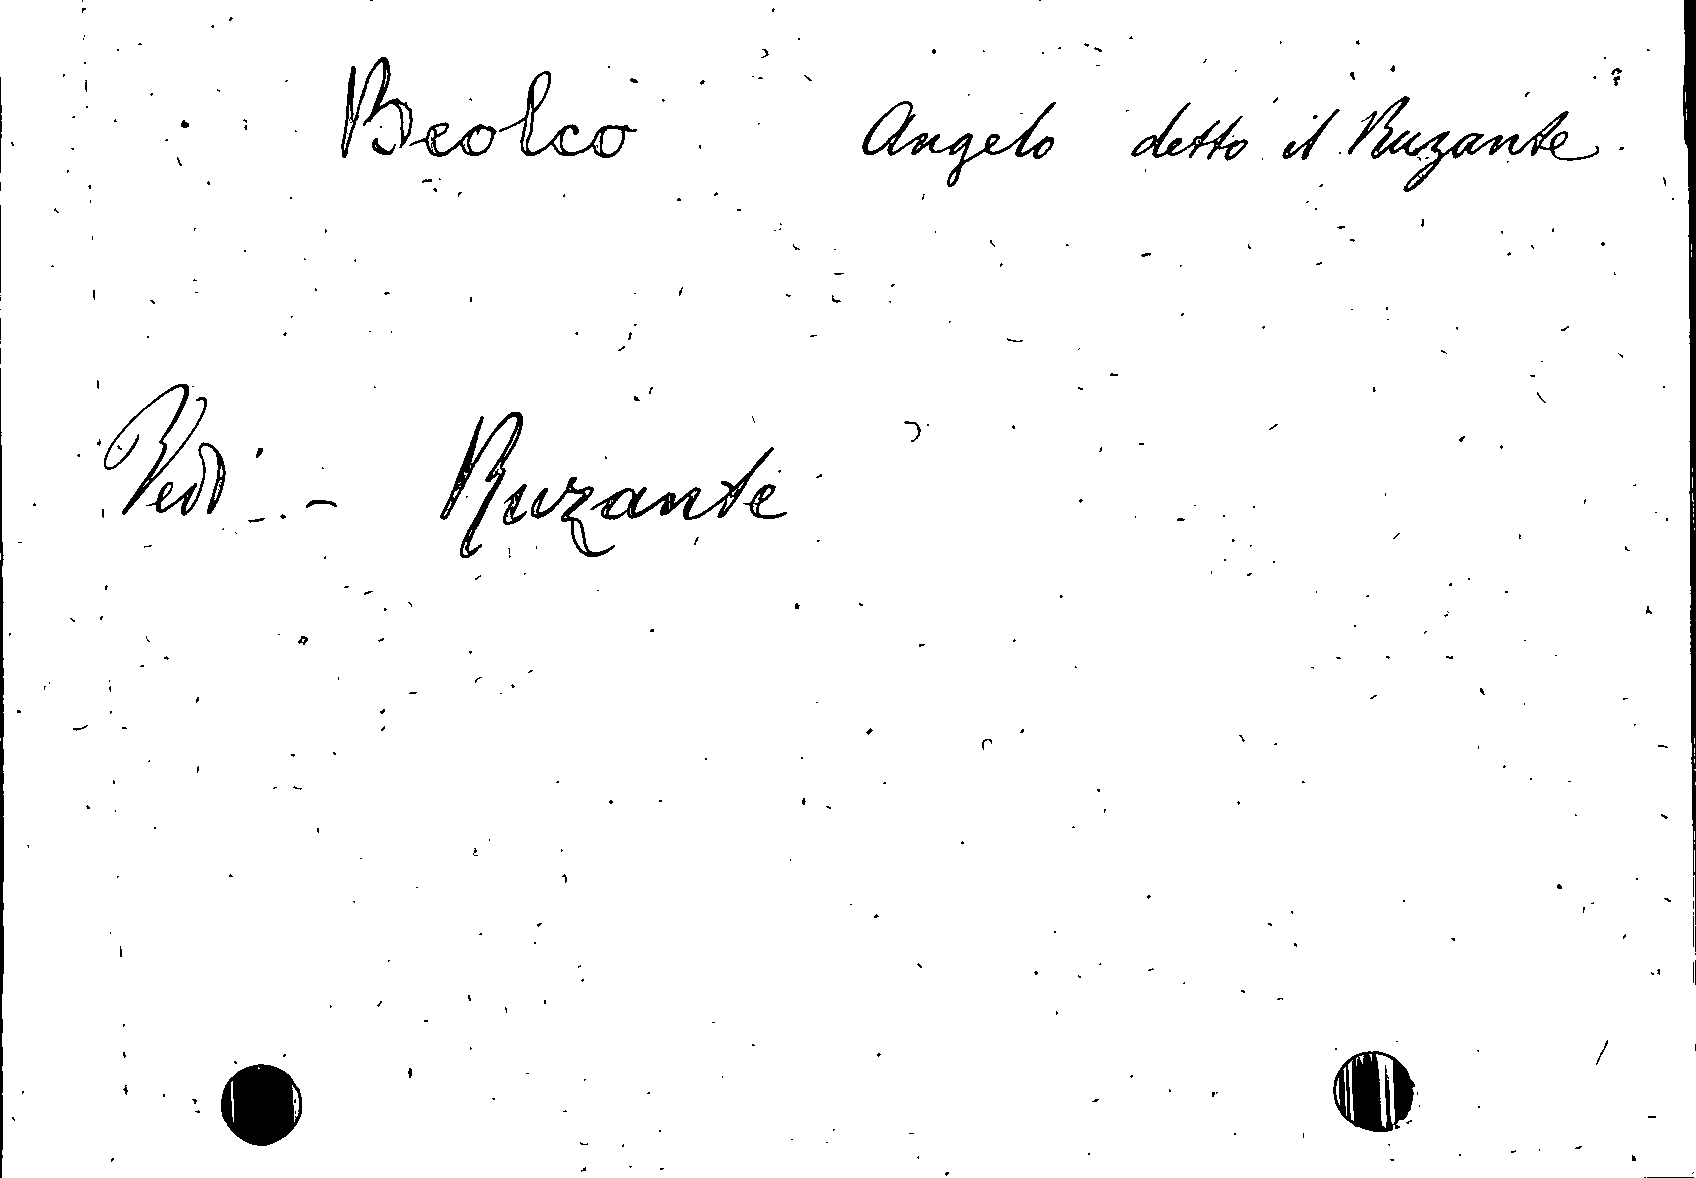 Beolco Angelo detto il Ruzante
Vedi - Ruzante